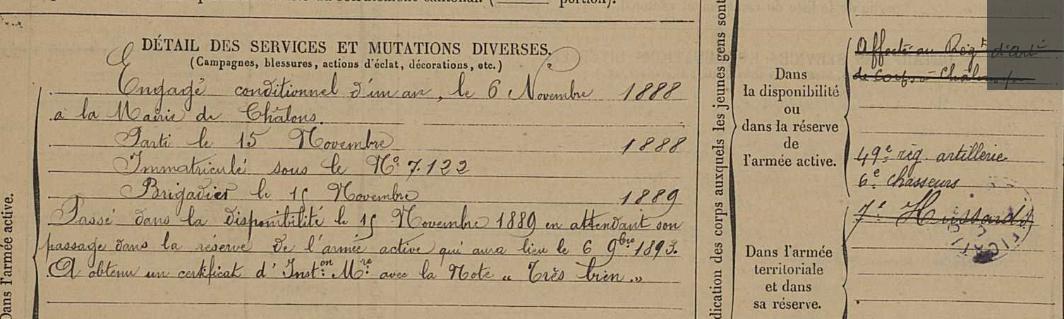 DÉTAIL DES SERVICES ET MUTATIONS DIVERSES.
(Campagnes, blessures, actions d'éclat, décorations, etc.)
Engagé conditionnel d'un an, le 6 Novembre 1888
à la Mairie de Châlons.
Parti le 15 Novembre 1888
Immatriculé sous le Nº 7.122
Brigadier le 15 Novembre 1889
Passé dans la disponibilité le 15 Novembre 1889 en attendant son
passage dans la réserve de l'armée active qui aura lieu le 6 9bre 1893.
A obtenu un certificat d'Inston Mre avec la Note „ Très bien „
Dans l'armée active.
dication des corps auxquels les jeunes gens sont
Dans
la disponibilité
ou
dans la réserve
de
l'armée active.
Affecté au Régt d'Art
de Corps Châlons
49e rég artillerie
6e chasseurs
Dans l'armée
territoriale
et dans
sa réserve.
7e Hussards